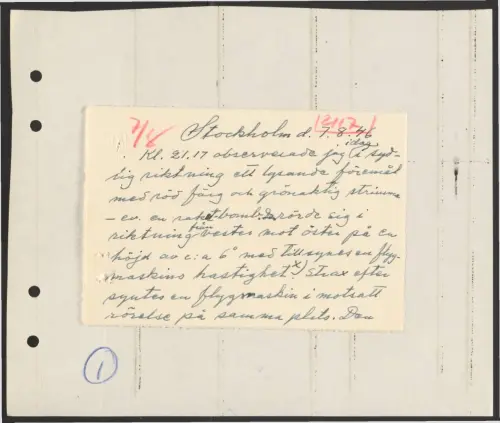 7/8
Stockholm d. 7.8.46
idag
Kl. 21.17 observerade jag i syd-
lig riktning ett lysande föremål
med röd färg och grönaktig strimma
– ev. en raket-bomb. rörde sig i
riktning från väster mot öster på ca
höjd av c:a 6° med till synes en flyg-
maskins hastighet. x) Strax efter
syntes en flygmaskin i motsatt
rörelse på samma plats. Den
1